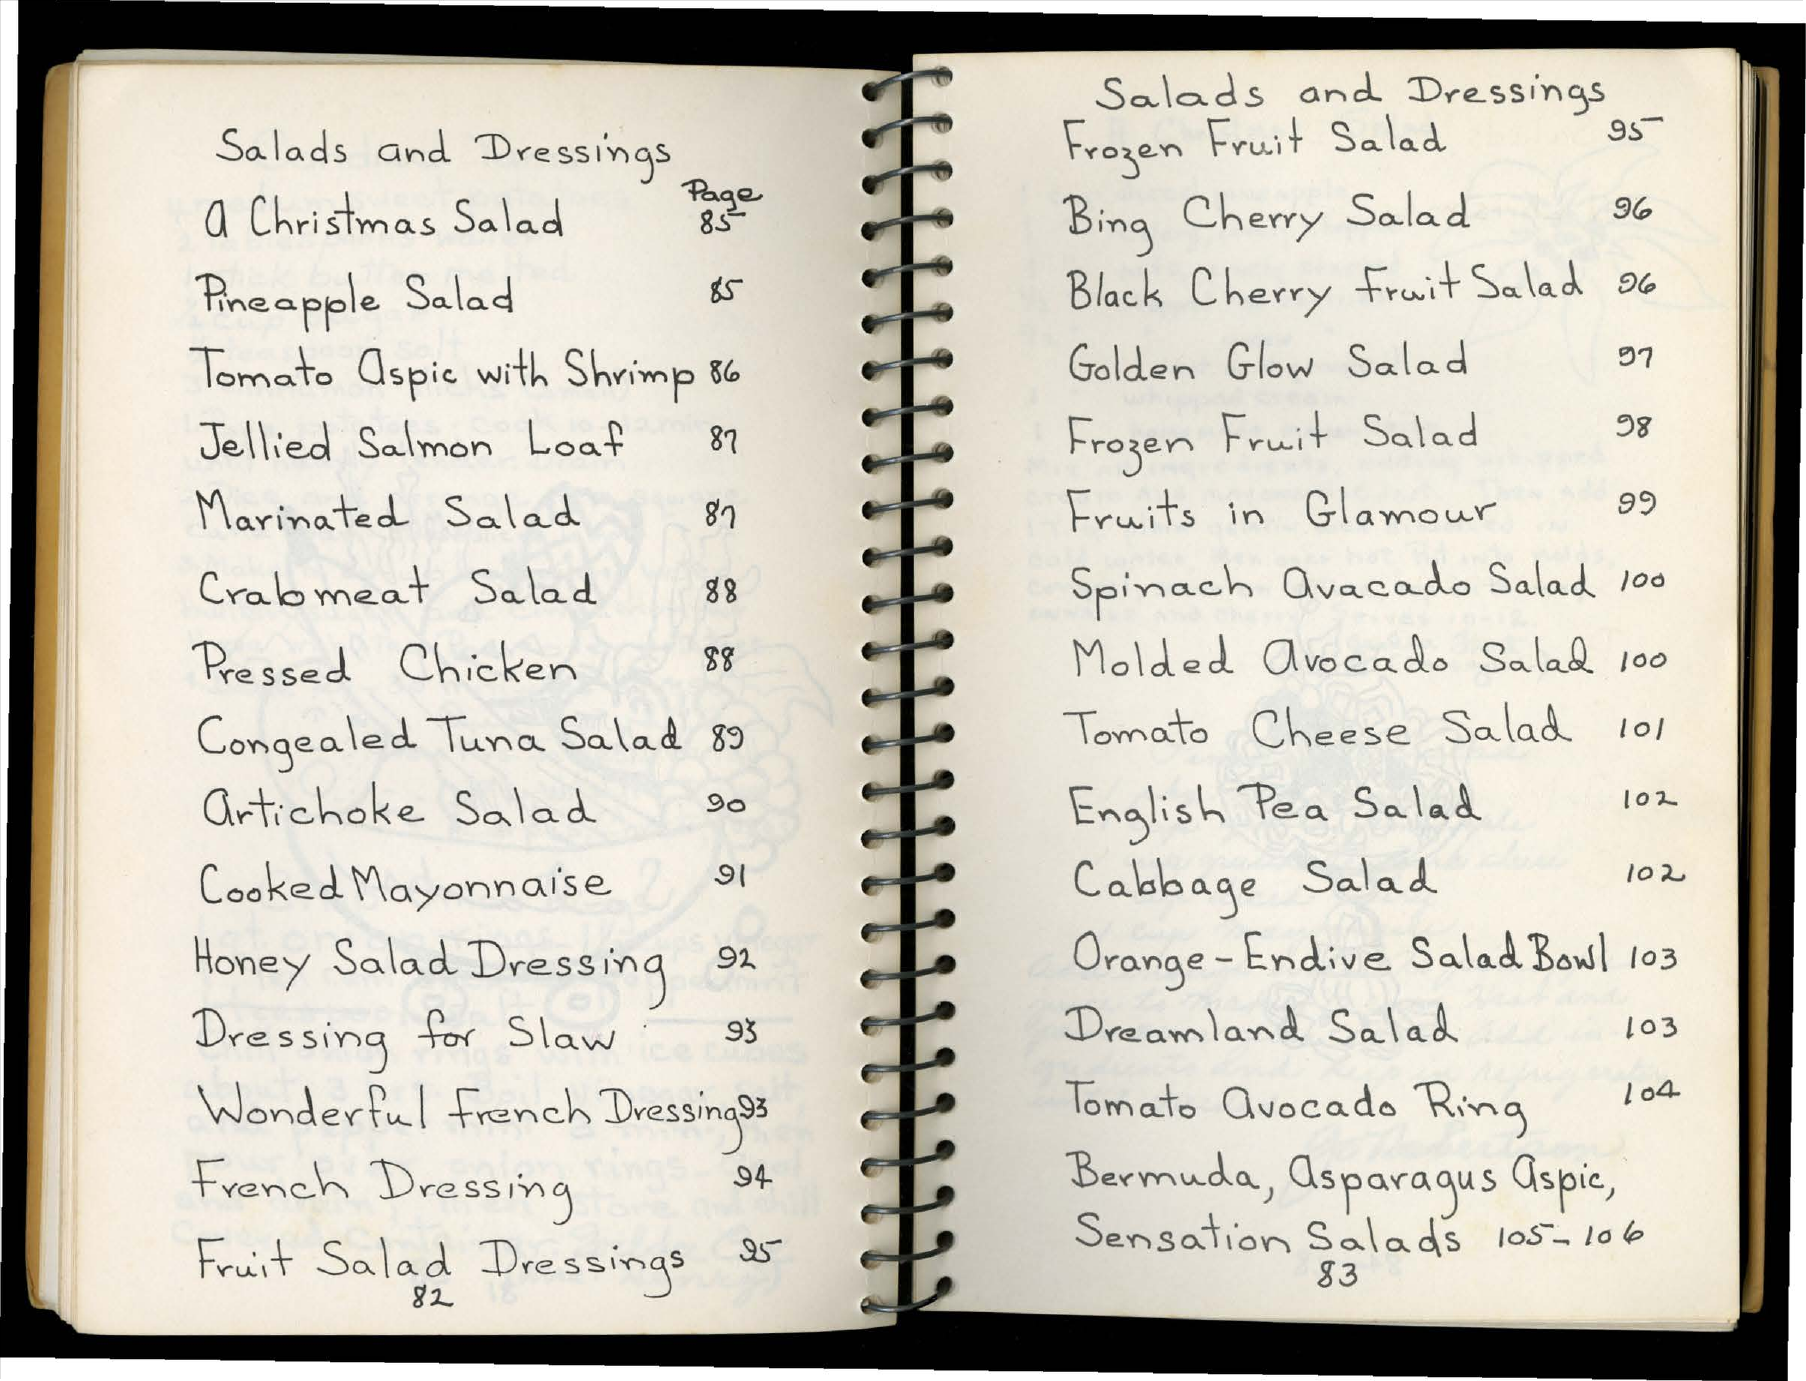 Salads and Dressings
Page
A Christmas Salad 85
Pineapple Salad 85
Tomato Aspic with Shrimp 86
Jellied Salmon Loaf 87
Marinated Salad 87
Crabmeat Salad 88
Pressed Chicken 88
Congealed Tuna Salad 89
Artichoke Salad 90
Cooked Mayonnaise 91
Honey Salad Dressing 92
Dressing for Slaw 93
Wonderful French Dressing 93
French Dressing 94
Fruit Salad Dressings 95
82
Salads and Dressings
Frozen Fruit Salad 95
Bing Cherry Salad 96
Black Cherry Fruit Salad 96
Golden Glow Salad 97
Frozen Fruit Salad 98
Fruits in Glamour 99
Spinach Avacado Salad 100
Molded Avocado Salad 100
Tomato Cheese Salad 101
English Pea Salad 102
Cabbage Salad 102
Orange-Endive Salad Bowl 103
Dreamland Salad 103
Tomato Avocado Ring 104
Bermuda, Asparagus Aspic,
Sensation Salads 105-106
83